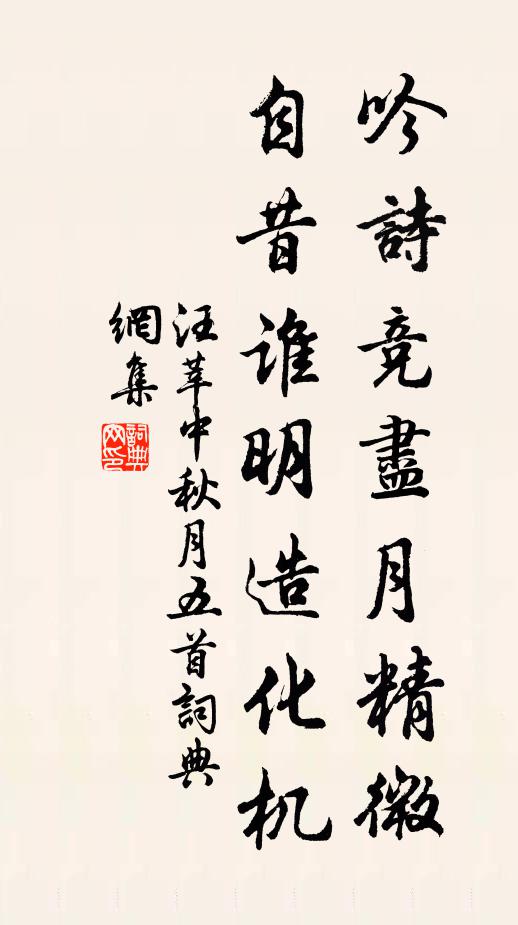 吟詩竞盡月精微
自昔谁明造化机
汪莘中秋月五首詞典
網集
詞典网印